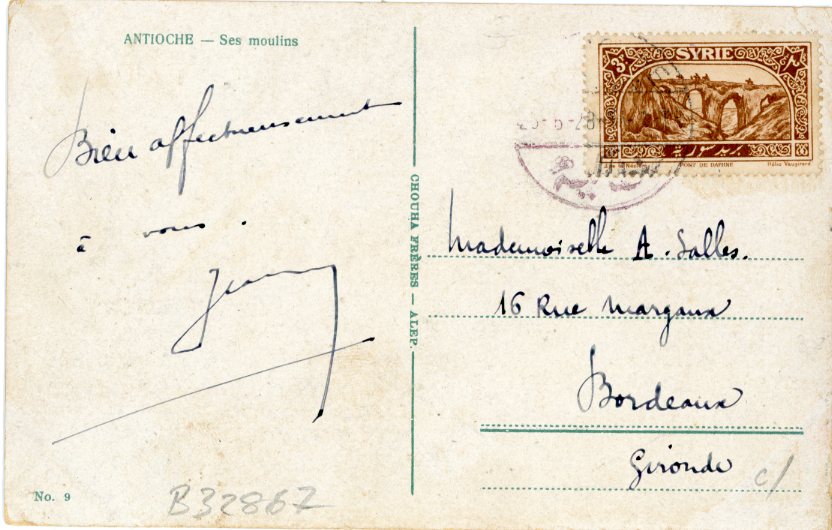 ANTIOCHE — Ses moulins
Bien affectueusement
à vous.
No. 9
B32867
CHOUHA FRÈRES — ALEP.
SYRIE
3
PONT DE DAPHNÉ
Hélio Vaugirard
Mademoiselle A. Salles.
16 Rue Margaux
Bordeaux
Gironde
c/